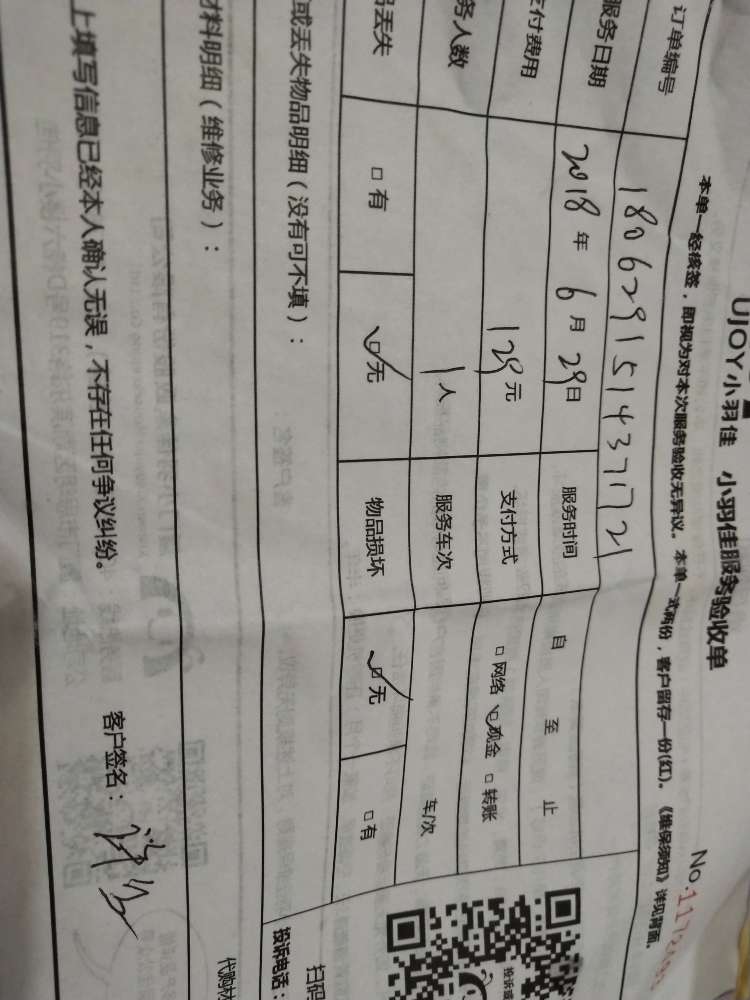 UJOY小羽佳 小羽佳服务验收单
本单一经核签，即视为对本次服务验收无异议。本单一式两份，客户留存一份(红)。《维保须知》详见背面。
订单编号 1806291514371721
服务日期 2018年6月29日 服务时间 自 至 止
支付费用 129元 支付方式 □网络 ☑现金 □转账
务人数 1人 服务车次 车/次
丢失 □有 ☑无 物品损坏 ☑无 □有
或丢失物品明细（没有可不填）：
材料明细（维修业务）：
上填写信息已经本人确认无误，不存在任何争议纠纷。
客户签名：
扫码
投诉电话：
代购材